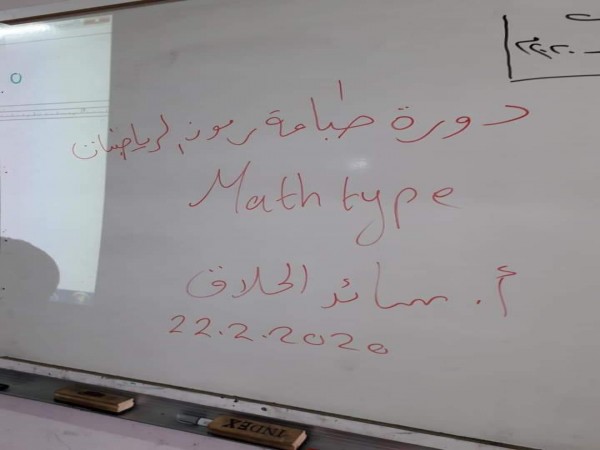 دورة طباعة رموز الرياضيات
Math type
أ. سائد الحلاق
22.2.2020
INDEX